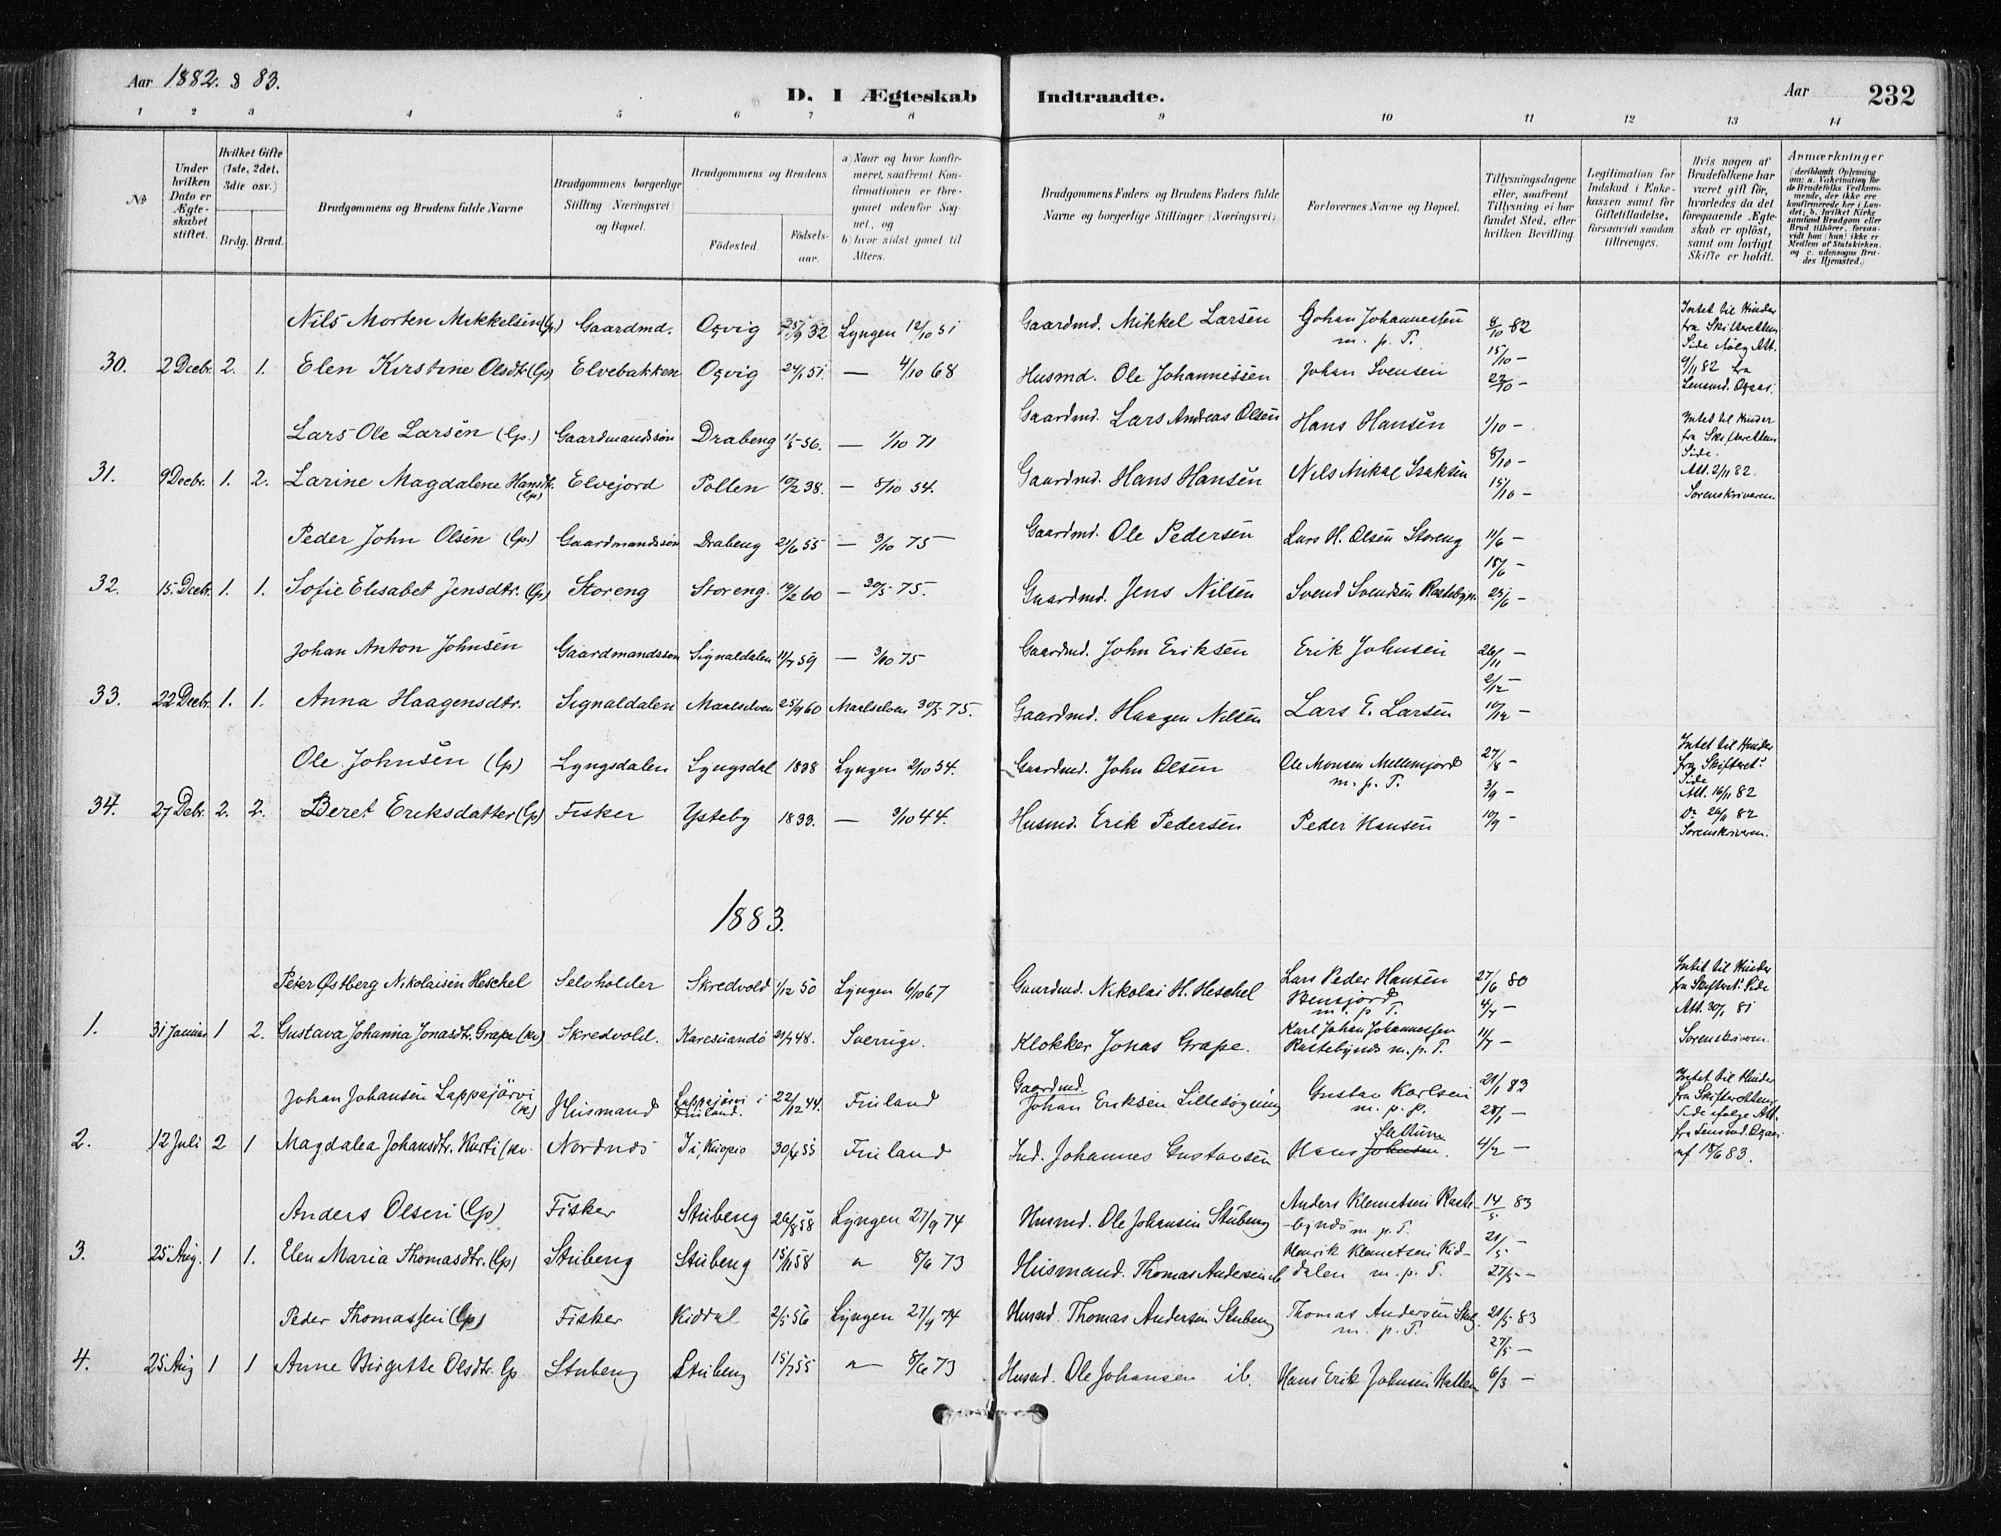 Aar 1882. & 83.
D. I Ægteskab Indtraadte.
Aar 232
1 2 3 4 5 6 7 8 9 10 11 12 13 14
№
Under hvilken Dato er Ægteskabet stiftet.
Hvilket Gifte (1ste, 2det, 3die osv.)
Brdg. Brud.
Brudgommens og Brudens fulde Navne
Brudgommens borgerlige Stilling (Næringsvei) og Bopæl.
Brudgommens og Brudens
Fødested. Fødsels-aar.
a) Naar og hvor konfirmeret, saafremt Konfirmationen er foregaaet udenfor Sognet, og
b) hvor sidst gaaet til Alters.
Brudgommens Faders og Brudens Faders fulde Navne og borgerlige Stillinger (Næringsvei)
Forlovernes Navne og Bopæl.
Tillysningsdagene eller, saafremt Tillysning ei har fundet Sted, efter hvilken Bevilling.
Legitimation for Indskud i Enkekassen samt for Giftetilladelse, forsaavidt saadan tiltrænges.
Hvis nogen af Brudefolkene har været gift før, hvorledes da det foregaaende Ægteskab er opløst, samt om lovligt Skifte er holdt.
Anmærkninger (deriblandt Oplysning om: a. Vakcination for de Brudefolks Vedkommende, der ikke ere konfirmerede her i Landet; b. hvilket Kirkesamfund Brudgom eller Brud tilhører, forsaavidt han (hun) ikke er Medlem af Statskirken, og c. udensogns Brudes Hjemsted.)
Nils Morten Mikkelsen (lp.) Gaardmd. Oxvig 25/9 32 Lyngen 12/10 51 Gaardmd. Mikkel Larsen Johan Johannessen m. p. T. 8/10 82 Intet til Hinder fra Skifterettens Side ifølg Att.
30. 2 Decbr. 2. 1. Elen Kirstine Olsdtr. (lp) Elvebakken Oxvig 24/1 51. — 4/10 68 Husmd. Ole Johannessen Johan Svensen 15/10 — 22/10 — 9/11 82 fra Lensmd.
Lars Ole Larsen (lp.) Gaardmandssøn Drabeng 1/5 56. — 1/10 71 Gaardmd. Lars Andreas Olsen Hans Hansen 1/10 — Intet til Hinder fra Skifterettens Side.
31. 9 Decbr. 1. 2. Larine Magdalene Hansdtr. (lp) Elvejord Pollen 10/2 38. — 8/10 54. Gaardmd. Hans Hansen Nils Mikal Isaksen 8/10 — 15/10 — Att. 2/11 82. Sorenskriveren
Peder John Olsen (lp.) Gaardmandssøn Drabeng 21/6 55 — 3/10 75 — Gaardmd. Ole Pedersen Lars H. Olsen Storeng 11/6 —
32. 15. Decbr. 1. 1. Sofie Elisabet Jensdtr. (lp) Storeng Storeng. 19/2 60 — 30/5 75. Gaardmd. Jens Nilsen Svend Svendsen Rastebyn. 18/6 — 25/6 —
Johan Anton Johnsen Gaardmandssøn Signaldalen 11/7 59 — 3/10 75 Gaardmd. John Eriksen Erik Johnsen 26/11 —
33. 22 Decbr. 1. 1. Anna Haagensdtr. Signaldalen Maalselven 25/9 60 Maalselven 30/5 75. Gaardmd. Haagen Nilsen Lars E. Larsen 2/12 — 10/12 —
Ole Johnsen (lp) Lyngsdalen Lyngsdal 1838 Lyngen 2/10 54. Gaardmd. John Olsen Ole Monsen Mellemjord m. p. T. 27/8 — Intet til Hinder fra Skifteret. Side
34. 27 Debr. 2. 2. Beret Eriksdatter (lp) Fisker Ysteby 1833. — 3/10 44. Husmd. Erik Pedersen Peder Hansen 3/9 — 10/9 — Att. 16/11 82 Do 24/11 82 Sorenskriveren.
1883.
Peter Østberg Nikolaisen Heschel Selvholder Skredvold 1/12 50 Lyngen 6/10 67 Gaardmd. Nikolai H. Heschel Lars Peder Hansen Bensjord m. p. T. 27/6 80 Intet til Hinder fra Skifteret: Side
1. 31 Januar 1 2. Gustava Johanna Jonasdtr. Grape (kv) Skredvold. Karesuando 21/7 48. Sverrige. Klokker Jonas Grape. Karl Johan Johannessen Rastebynds m. p. T. 4/7 — 11/7 — Att. 30/1 81 Sorenskriveren.
Johan Johansen Lappajärvi (kv.) Husmand Lappajärvi i Finland. 22/12 44. Finland Gaardmd. Johan Eriksen Gustav Karlsen m. p. p. 21/1 83 28/1 — Intet til Hinder fra Skifteretten Side ifølge Att.
2. 12 Juli 2 1 Magdalea Johansdtr. Kurti (kv. Nordnes Ii, Kuopio 30/4 55 Finland Ind. Johannes Gustavsen Hans Johnsen. 4/2 — fra Lensmd. af 18/6 83.
Anders Olsen (lp) Fisker Stubeng 26/8 58 Lyngen 27/9 74 Husmd. Ole Johansen Stubeng Anders Klemetsen Raste-bynds m. p. T. 14/5 83
3. 25 Aug. 1 1. Elen Maria Thomasdtr. (lp) Stubeng Stubeng 15/11 58 " 8/6 73 Husmand. Thomas Andersen ib Henrik Klemetsen Kid-dalen m. p. T. 21/5 — 27/5 —
Peder Thomassen (lp) Fisker Kiddal 2/5 56 Lyngen 27/9 74 Husmd. Thomas Andersen Stubeng Thomas Andersen Stbg. m. p. T. 21/5 83
4. 25 Aug 1 1 Anne Birgitte Olsdtr. lp Stubeng Stubeng 15/7 55 " 8/6 73 Husmd. Ole Johansen ib. Hans Erik Johnsen Hatten 27/5 — 6/3 —